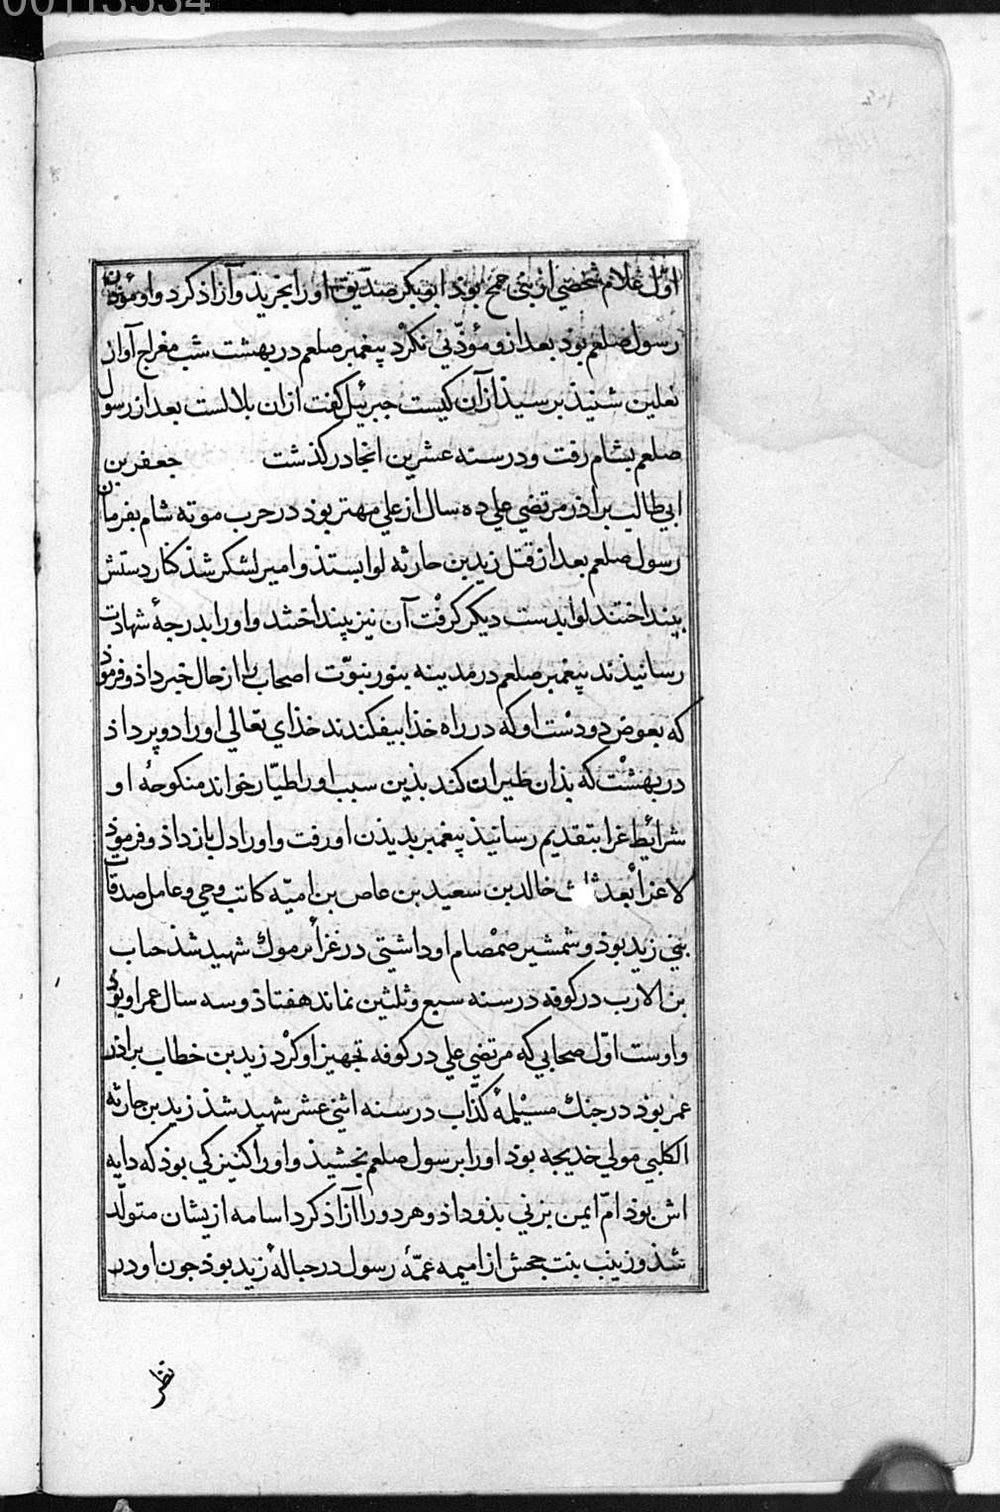 00113534
اوّل غلام شخصي از بني جمح بوذ ابو بكر صدّيق او را بخريذ و آزاذ كرد و او مؤذن
رسول صلعم بوذ بعد ازو مؤذّني نكرد پيغمبر صلعم در بهشت شب معراج آواز
نعلين شنيذ برسيذ از آن كيست جبرئيل كفت ازان بلالست بعد از رسول
صلعم بشام رفت و در سنه عشرين انجا در كذشت جعفر بن
ابي طالب براذر مرتضي علي ده سال از علي مهتر بوذ در حرب موته شام بفرمان
رسول صلعم بعد از قتل زيد بن حارثه لوا بستذ و امير لشكر شذ كفار دستش
بينداختند لوا بدست ديكر كرفت آن نيز بينداختند و او را بدرجهٔ شهادت
رسانيذند پيغمبر صلعم در مدينه بنور نبوّت اصحاب را از حال خبر داذ و فرموذ
كه بعوض دو دست او كه در راه خذا بيفكندند خذاي تعالي او را دو پر داذ
در بهشت كه بذان طيران كند بذين سبب او را طيّار خواند منكوحهٔ او
شرائط عزا بتقديم رسانيذ پيغمبر بديذن او رفت و او را دل باز داذ و فرموذ
لا عزا بعد ثلث خالد بن سعيد بن عاص بن اميّه كاتب وحي و عامل صدقات
بني زيد بوذ و شمشير صمصام او داشتي در غزاء يرموك شهيد شذ حباب
بن الارب در كوفه در سنه سبع و ثلثين نماند هفتاذ و سه سال عمر او بوذ
و اوست اوّل صحابي كه مرتضي علي در كوفه تجهيز او كرد زيد بن خطاب براذر
عمر بوذ در جنك مسيلمهٔ كذّاب در سنه اثني عشر شهيد شذ زيد بن حارثه
الكلبي مولي خديجه بوذ او را برسول صلعم بخشيذ و او را كنيزكي بوذ كه دايه
اش بوذ امّ ايمن بزني بذو داذ و هر دو را آزاذ كرد اسامه ازيشان متولّد
شذ و زينب بنت جحش از اميمه عمّهٔ رسول در حبالهٔ زيد بوذ جون او در
نظر